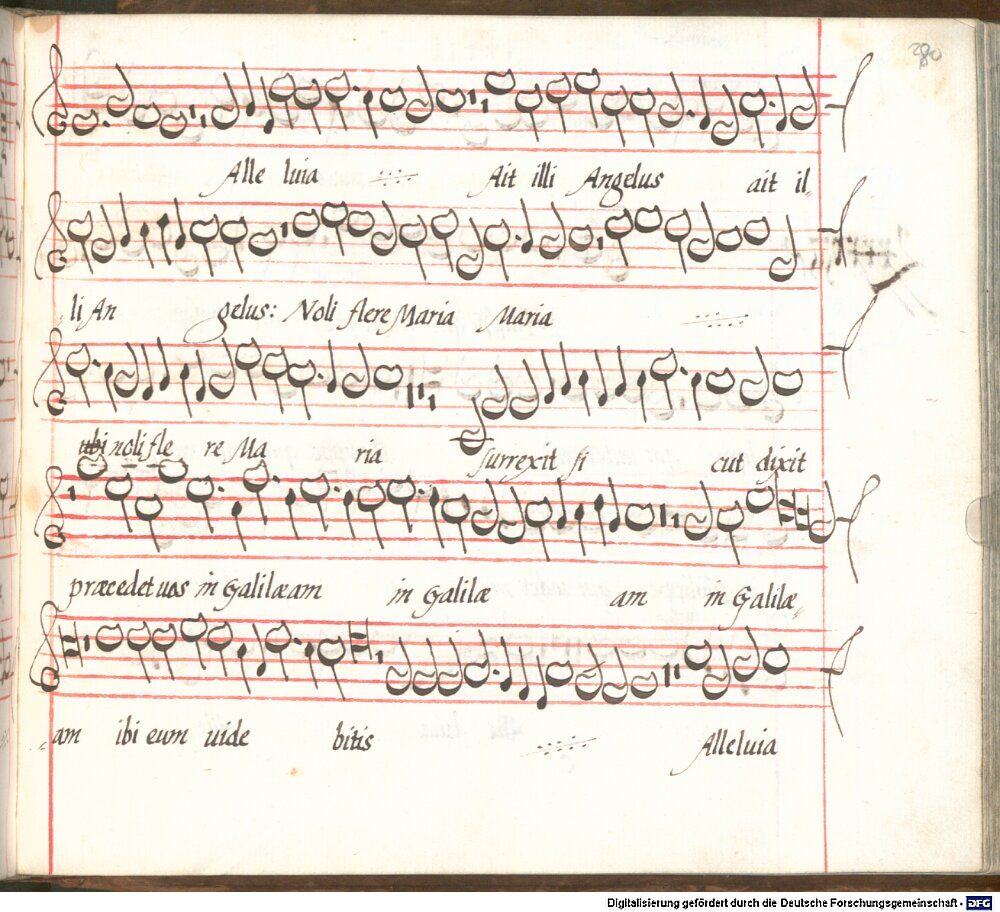 280
Alle luia ·/.· Ait illi Angelus ait il-
-li An gelus: Noli flere Maria Maria ·/.·
ubi noli fle re Ma ria surrexit si cut dixit
præcedet uos in Galilæam in Galilæ am in Galilæ-
-am ibi eum uide bitis ·/.· Alleluia
Digitalisierung gefördert durch die Deutsche Forschungsgemeinschaft - DFG